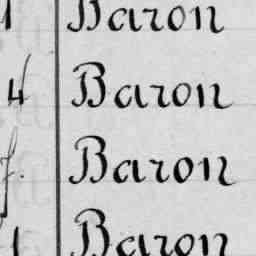 Baron
4 Baron
f. Baron
1 Baron